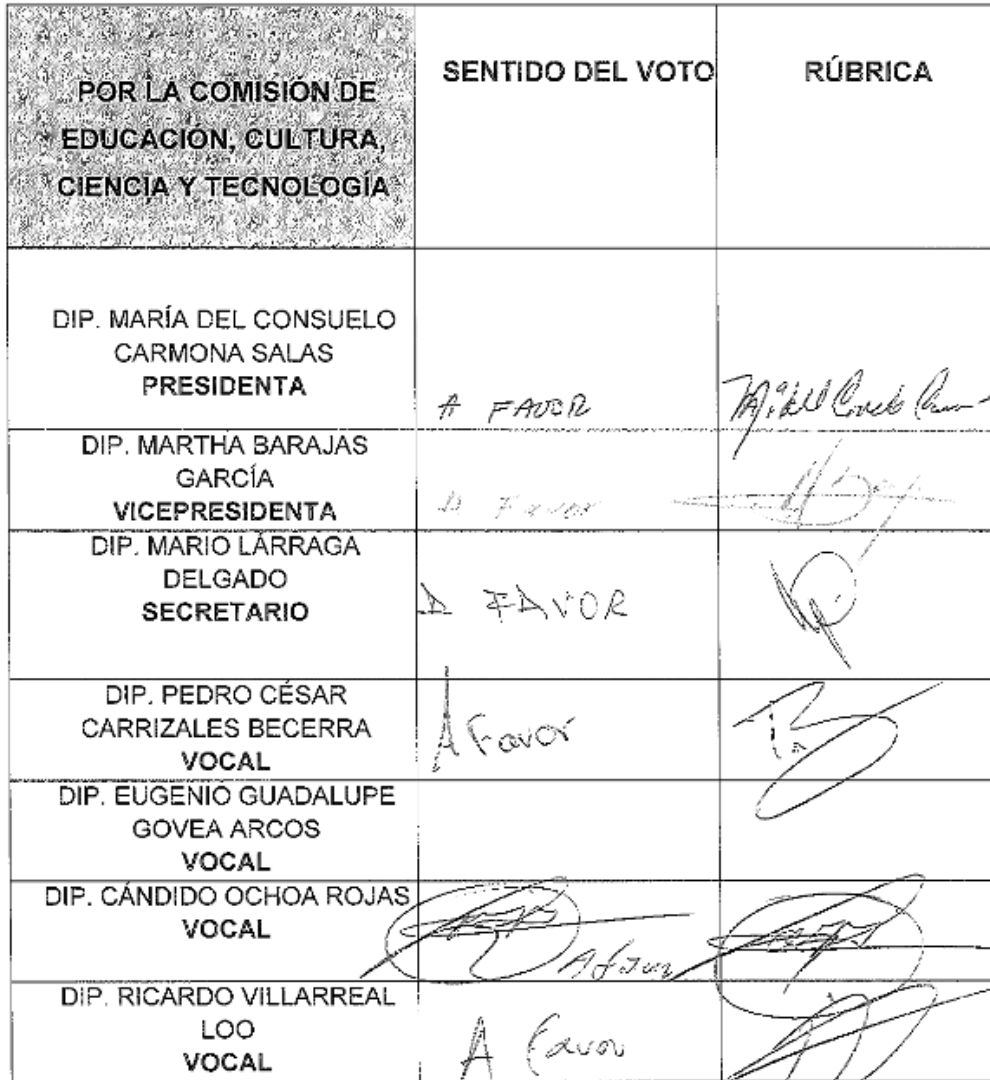 POR LA COMISIÓN DE
EDUCACIÓN, CULTURA,
CIENCIA Y TECNOLOGÍA
SENTIDO DEL VOTO
RÚBRICA
DIP. MARÍA DEL CONSUELO
CARMONA SALAS
PRESIDENTA
A FAVOR
DIP. MARTHA BARAJAS
GARCÍA
VICEPRESIDENTA
A Favor
DIP. MARIO LÁRRAGA
DELGADO
SECRETARIO
A FAVOR
DIP. PEDRO CÉSAR
CARRIZALES BECERRA
VOCAL
A Favor
DIP. EUGENIO GUADALUPE
GOVEA ARCOS
VOCAL
DIP. CÁNDIDO OCHOA ROJAS
VOCAL
DIP. RICARDO VILLARREAL
LOO
VOCAL
A favor